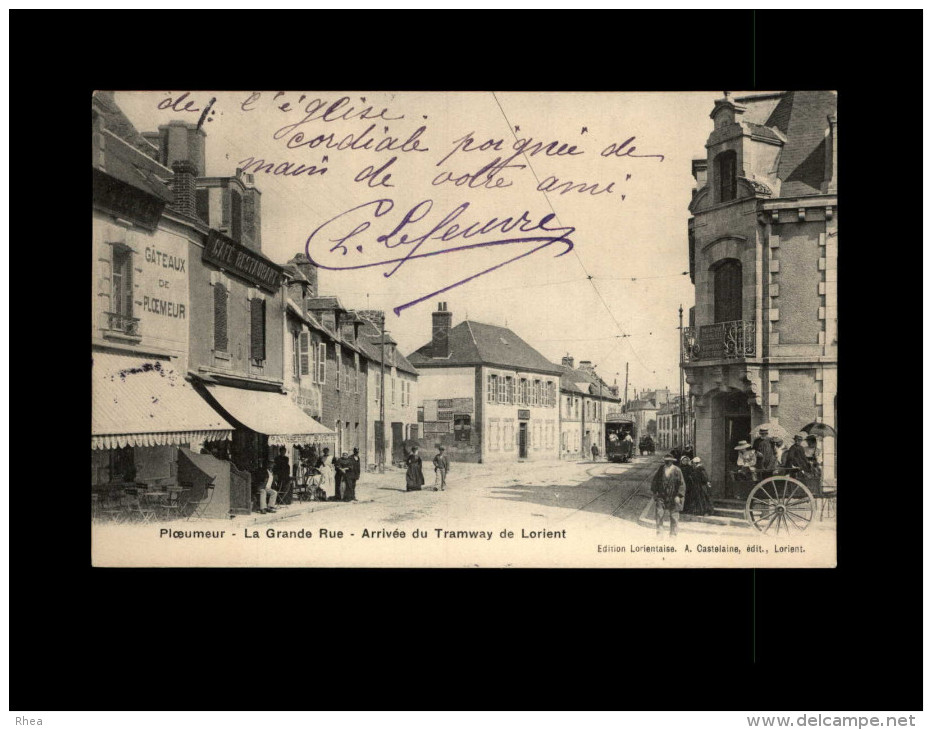 de l'église.
cordiale poignée de
main de votre ami.
Lefeuvre
GÂTEAUX
DE
PLŒMEUR
CAFÉ RESTAURANT
Plœumeur - La Grande Rue - Arrivée du Tramway de Lorient
Edition Lorientaise. A. Castelaine, édit., Lorient.
Rhea
www.delcampe.net